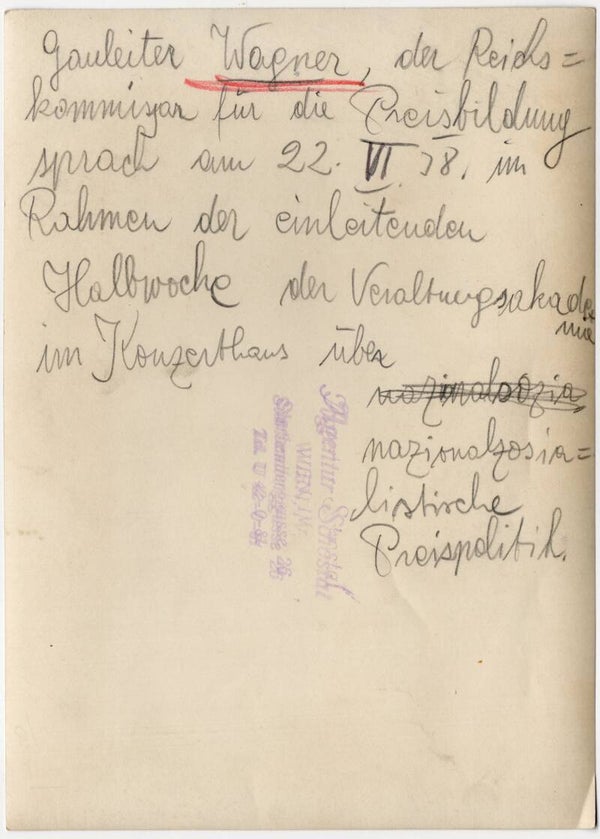 Gauleiter Wagner, der Reichs=
kommissar für die Preisbildung
sprach am 22. VI. 38. im
Rahmen der einleitenden
Halbwoche der Veraltungsakade
mie
im Konzerthaus über
nazionalsozia=
listische
Preispolitik.
Agentur
WIEN, IV.
26
Tel. U 42-0-84